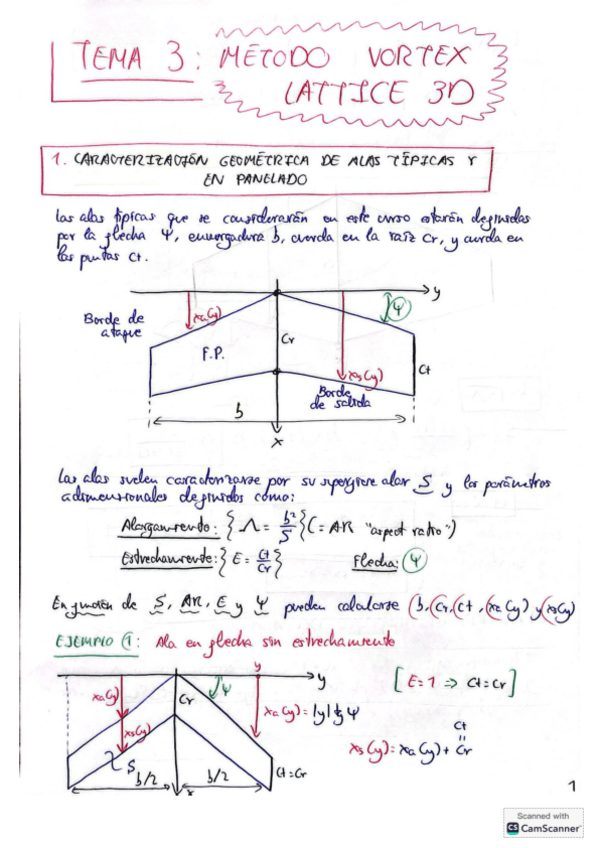 TEMA 3: MÉTODO VORTEX
LATTICE 3D
1. CARACTERIZACIÓN GEOMÉTRICA DE ALAS TÍPICAS Y
EN PANELADO
Las alas típicas que se considerarán en este curso estarán definidas
por la flecha Ψ, envergadura b, cuerda en la raíz Cr, y cuerda en
las puntas Ct.
y
Borde de
ataque
xa(y)
Ψ
F.P.
Cr
xs(y)
Ct
Borde
de salida
b
x
Las alas suelen caracterizarse por su superficie alar S y los parámetros
adimensionales definidos como:
Alargamiento: { Λ = b²/S } (= AR "aspect ratio")
Estrechamiento: { E = Ct/Cr } Flecha: Ψ
En función de S, AR, E y Ψ pueden calcularse (b, Cr, Ct, xa(y) y xs(y))
EJEMPLO 1: Ala en flecha sin estrechamiento
y
y
xa(y)
Cr
Ψ
[E=1 => Ct=Cr]
xa(y) = |y| tg Ψ
xs(y)
Ct
=
xs(y) = xa(y) + Cr
S
b/2
b/2
Ct=Cr
x
1
Scanned with
CS CamScanner